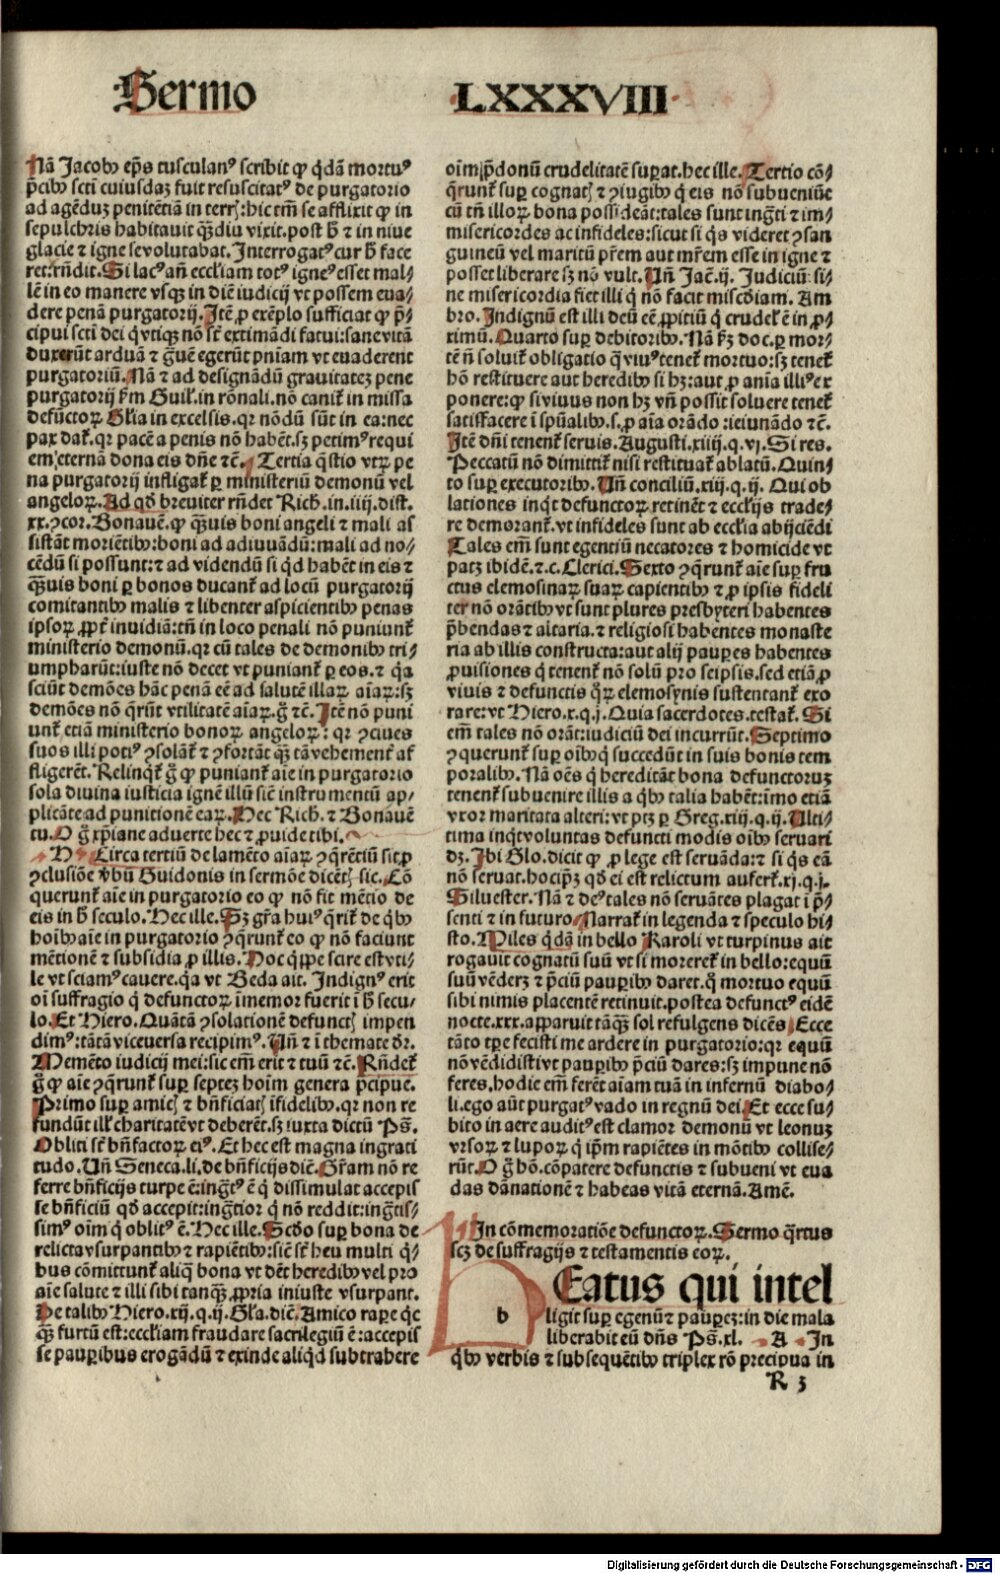 Sermo
·LXXXVIII·
Nā Jacobꝰ ep̄s tusculanꝰ scribit ꝙ q̇dā mortuꝰ
p̄cibꝰ scti cuiusdaz fuit resuscitatꝰ de purgatorio
ad agēduz penitētiā in terrꝭ: hic tm̄ se afflixit ꝙ in
sepulchris habitauit qᷓ̄diu vixit. post h̄ ⁊ in niue
glacie ⁊ igne se volutabat. Interrogatꝰ cur h̄ face
ret: rn̄dit. Si lacꝰ añ eccl̄iam totꝰ igneꝰ esset mal⸗
lē in eo manere vsqꝫ in diē iudicij vt possem eua⸗
dere penā purgatorij. Itē ꝓ exēplo sufficiat ꝙ p̄⸗
cipui scti dei q̇ vtiqꝫ nō st̄ extimādi fatui: sane vitā
duxerūt arduā ⁊ gᷓuē egerūt pn̄iam vt euaderent
purgatoriū. Nā ⁊ ad designādū grauitatez pene
purgatorij ẜm Guil̄. in rōnali. nō canit᷑ in missa
defūctoꝝ Gl̄ia in excelsis. qꝛ nōdū sūt in ea: nec
pax dat᷑. qꝛ pacē a penis nō habēt. sꝫ petimꝰ requi
em eternā dona eis dn̄e ⁊c̄. Tertia q̄stio vtꝝ pe
na purgatorij infligat᷑ ꝑ ministeriū demonū vel
angeloꝝ. Ad qd̄ breuiter rn̄det Rich. in. iiij. dist.
xx. ꝯcor. Bonauē. ꝙ qᷓ̄uis boni angeli ⁊ mali as
sistāt moriētibꝰ: boni ad adiuuādū: mali ad no⸗
cēdū si possunt: ⁊ ad videndū si qd̄ habēt in eis ⁊
qᷓ̄uis boni ꝑ bonos ducant᷑ ad locū purgatorij
comitantibꝰ malis ⁊ libenter aspicientibꝰ penas
ipsoꝝ ꝓpt̄ inuidiā: tn̄ in loco penali nō puniunt᷑
ministerio demonū. qꝛ cū tales de demonibꝰ tri⸗
umpharūt: iuste nō decet vt puniant᷑ ꝑ eos. ⁊ q̇a
sciūt demōes hāc penā eē ad salutē illaꝝ aīaꝝ: sꝫ
demōes nō q̄rūt vtilitatē aīaꝝ. gᷓ ⁊c̄. Itē nō puni
unt᷑ etiā ministerio bonoꝝ angeloꝝ: qꝛ ꝯciues
suos illi potiꝰ ꝯsolāt᷑ ⁊ ꝯfortāt qᷓ̄ tā vehement᷑ af
fligerēt. Relinq̇t᷑ gᷓ ꝙ puniant᷑ aīe in purgatorio
sola diuina iusticia ignē illū sic̄ instrumentū ap⸗
plicāte ad punitionē eaꝝ. Hec Rich. ⁊ Bonauē
tu. O gᷓ xp̄iane aduerte hec ⁊ ꝓuide tibi.
H Circa tertiū de lamēto aīaꝝ ꝯq̄rētiū sit ꝓ
ꝯclusiōe v̄bū Guidonis in sermōe dicētꝭ sic. Cō
querunt᷑ aīe in purgatorio eo ꝙ nō fit mētio de
eis in h̄ seculo. Hec ille. Sꝫ gr̄a huiꝰ q̄rit᷑ de q̇bꝰ
hoībꝰ aīe in purgatorio ꝯq̄runt᷑ eo ꝙ nō faciunt
mētionē ⁊ subsidia ꝓ illis. Hoc q̇ppe scire est vti⸗
le vt sciamꝰ cauere. q̇a vt Beda ait. Indignꝰ erit
oī suffragio q̇ defunctoꝝ īmemor fuerit ī h̄ secu⸗
lo. Et Hiero. Quātā ꝯsolationē defunctꝭ impen
dimꝰ: tātā viceuersa recipimꝰ. Un̄ ⁊ ī themate dꝛ.
Memēto iudicij mei: sic em̄ erit ⁊ tuū ⁊c̄. Rn̄det᷑
gᷓ ꝙ aīe ꝯq̄runt᷑ suꝑ septez hoīm genera p̄cipue.
Primo suꝑ amicꝭ ⁊ bn̄ficiatꝭ īfidelibꝰ. qꝛ non re
fundūt ill̄ charitatē vt deberēt. sꝫ iuxta dictū Ps̄.
Obliti st̄ bn̄factoꝝ eiꝰ. Et hec est magna ingrati
tudo. Un̄ Seneca. li. de bn̄ficijs diē. Gr̄am nō re
ferre bn̄ficijs turpe ē: ingᷓtꝰ ē q̇ dissimulat accepis
se bn̄ficiū qd̄ accepit: ingᷓtior q̇ nō reddit: ingᷓtis⸗
simꝰ oīm q̇ oblitꝰ ē. Hec ille. Scd̄o suꝑ bona de
relicta vsurpantibꝰ ⁊ rapiētibꝰ: sic̄ st̄ heu multi q̇⸗
bus cōmittunt᷑ aliq̇ bona vt dēt heredibꝰ vel pro
aīe salute ⁊ illi sibi tanqᷓ̄ ꝓpria iniuste vsurpant.
De talibꝰ Hiero. xij. q. ij. Gl̄a. diē. Amico raꝑe q̇c
qᷓ̄ furtū est: eccl̄iam fraudare sacrilegiū ē: accepis
se pauꝑibus erogādū ⁊ exinde aliq̇d subtrahere
oīm p̄donū crudelitatē suꝑat. hec ille. Tertio cō⸗
q̄runt᷑ suꝑ cognatꝭ ⁊ ꝯiugibꝰ q̇ eis nō subueniūt
cū tn̄ illoꝝ bona possideāt: tales sunt ingᷓti ⁊ im⸗
misericordes ac infideles: sicut si q̇s videret ꝯsan
guineū vel maritū pr̄em aut mr̄em esse in igne ⁊
posset liberare sꝫ nō vult. Un̄ Jac̄. ij. Judiciū si⸗
ne misericordia fiet illi q̇ nō facit misc̄diam. Am
bro. Indignū est illi deū eē ꝓpitiū q̇ crudel̄ ē in ꝓ⸗
ximū. Quarto suꝑ debitoribꝰ. Nā ẜꝫ doc. ꝑ mor⸗
tē n̄ soluit᷑ obligatio q̇ viuꝰ tenet᷑ mortuo: sꝫ tenet᷑
hō restituere aut heredibꝰ si hꝫ: aut ꝓ aīa illiꝰ ex
ponere: ꝙ si viuus non hꝫ vn̄ possit soluere tenet᷑
satisfacere ī spūalibꝰ. s. ꝓ aīa orādo: ieiunādo ⁊c̄.
Itē dn̄i tenent᷑ seruis. Augusti. xiiij. q. vj. Si res.
Peccatū nō dimittit᷑ nisi restituat᷑ ablatū. Quin⸗
to suꝑ executoribꝰ. Un̄ conciliū. xiij. q. ij. Qui ob
lationes inq̇t defunctoꝝ retinēt ⁊ eccl̄ijs trade⸗
re demorant᷑. vt infideles sunt ab eccl̄ia abijciēdi
Tales em̄ sunt egentiū necatores ⁊ homicide vt
patꝫ ibidē. ⁊. c. Clerici. Sexto ꝯq̄runt᷑ aīe suꝑ fru
ctus elemosinaꝝ suaꝝ capientibꝰ ⁊ ꝓ ipsis fideli
ter nō orātibꝰ vt sunt plures presbyteri habentes
p̄bendas ⁊ altaria. ⁊ religiosi habentes monaste
ria ab illis constructa: aut alij pauꝑes habentes
ꝓuisiones q̇ tenent᷑ nō solū pro seipsis. sed etiā ꝓ
viuis ⁊ defunctis q̊ꝝ elemosynis sustentant᷑ exo
rare: vt Hiero. x. q. j. Quia sacerdotes. testat᷑. Si
em̄ tales nō orāt: iudiciū dei incurrūt. Septimo
ꝯquerunt᷑ suꝑ oībꝰ q̇ succedūt in suis bonis tem
poralibꝰ. Nā oēs q̇ hereditāt bona defunctoruz
tenent᷑ subuenire illis a q̇bꝰ talia habēt: īmo etiā
vxor maritata alteri: vt ptꝫ ꝑ Greg. xiij. q. ij. Ulti⸗
tima inq̇t voluntas defuncti modis oībꝰ seruari
dꝫ. Ibi Glo. dicit ꝙ ꝓ lege est seruāda: ⁊ si q̇s eā
nō seruat. hocip̄ꝫ qd̄ ei est relictum aufert᷑. xj. q. j.
Siluester. Nā ⁊ deꝰ tales nō seruātes plagat ī p̄⸗
senti ⁊ in futuro. Narrat᷑ in legenda ⁊ speculo hi⸗
sto. Miles q̇dā in bello Karoli vt turpinus ait
rogauit cognatū suū vt si moreret᷑ in bello: equū
suū vēderꝫ ⁊ p̄ciū pauꝑibꝰ daret. q̊ mortuo equū
sibi nimis placentē retinuit. postea defunctꝰ eidē
nocte. xxx. apparuit tāqᷓ̄ sol refulgens dicēs. Ecce
tāto tꝑe fecisti me ardere in purgatorio: qꝛ equū
nō vēdidisti vt pauꝑibꝰ p̄ciū dares: sꝫ impune nō
feres. hodie em̄ ferēt aīam tuā in infernū diabo⸗
li. ego aūt purgatꝰ vado in regnū dei. Et ecce su⸗
bito in aere auditꝰ est clamor demonū vt leonuz
vrsoꝝ ⁊ lupoꝝ q̇ ip̄m rapiētes in mōtibꝰ collise⸗
rūt. O gᷓ hō. cōpatere defunctis ⁊ subueni vt eua
das dānationē ⁊ habeas vitā eternā. Amē.
In cōmemoratiōe defunctoꝝ. Sermo q̄rtus
scꝫ de suffragijs ⁊ testamentis eoꝝ.
b Eatus qui intel
ligit suꝑ egenū ⁊ pauꝑez: in die mala
liberabit eū dn̄s Ps̄. xl. A In
q̇bꝰ verbis ⁊ subsequētibꝰ triplex rō precipua in
R 3
Digitalisierung gefördert durch die Deutsche Forschungsgemeinschaft - DFG